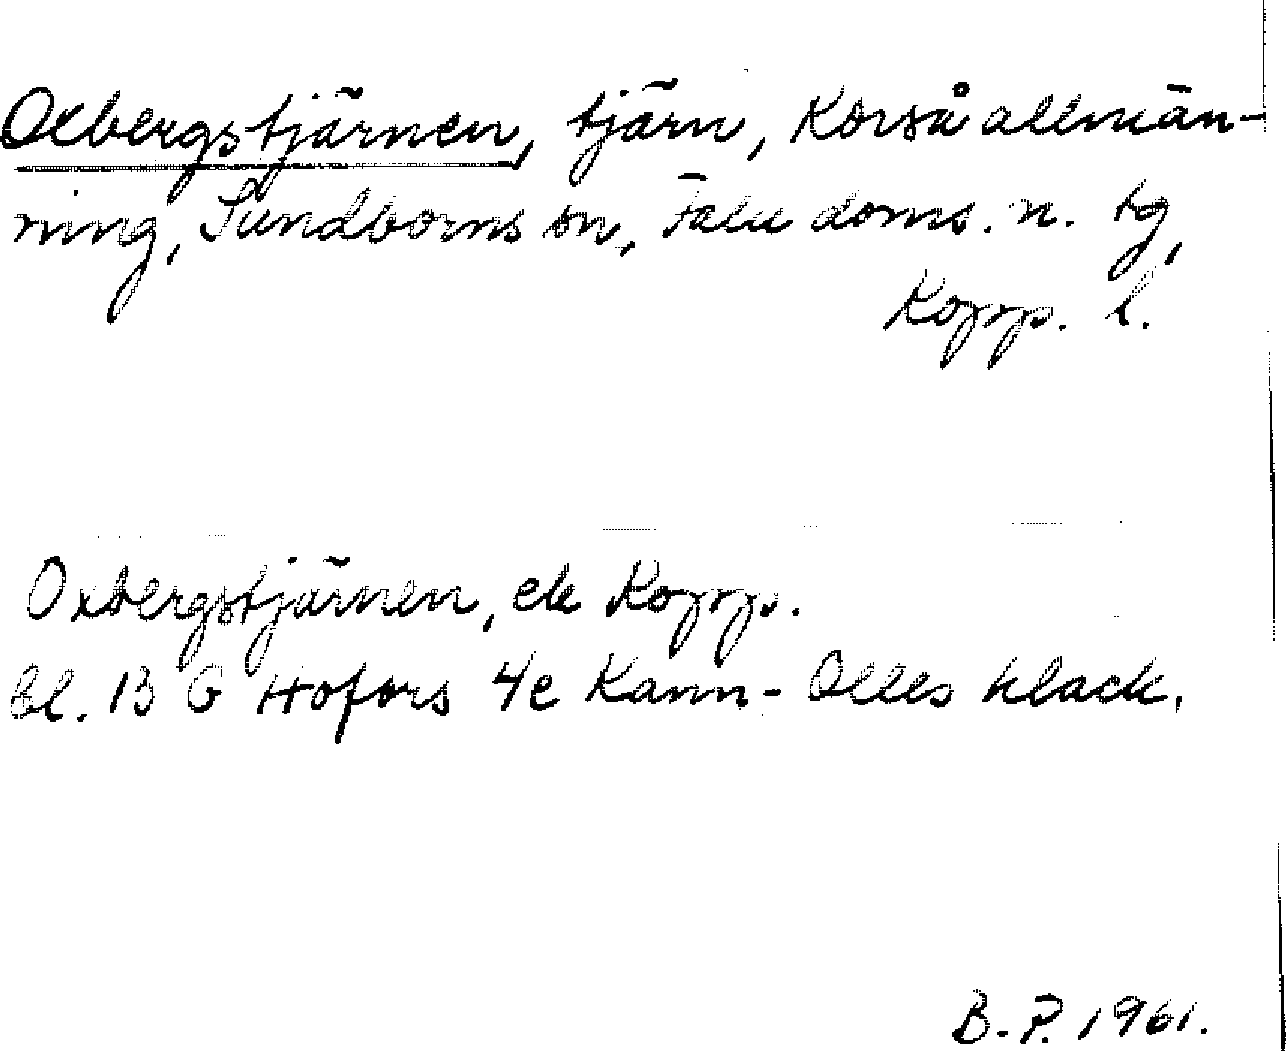 Oxbergstjärnen, tjärn, Korså allmän-
ning, Sundborns sn, Falu doms. n. tg,
Kopp. l.
Oxbergstjärnen, ek Kopp.
bl. 13 G Hofors 4e Kann-Olles klack.
B.P. 1961.